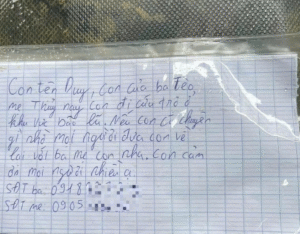 Con tên Duy, con của ba Tèo,
mẹ Thuỷ nay con đi cứu trợ ở
khu vực bão lũ. Nếu con có chuyện
gì nhờ mọi người đưa con về
lại với ba mẹ con nha. Con cảm
ơn mọi người nhiều ạ.
SĐT ba 0918
SĐT mẹ 0905